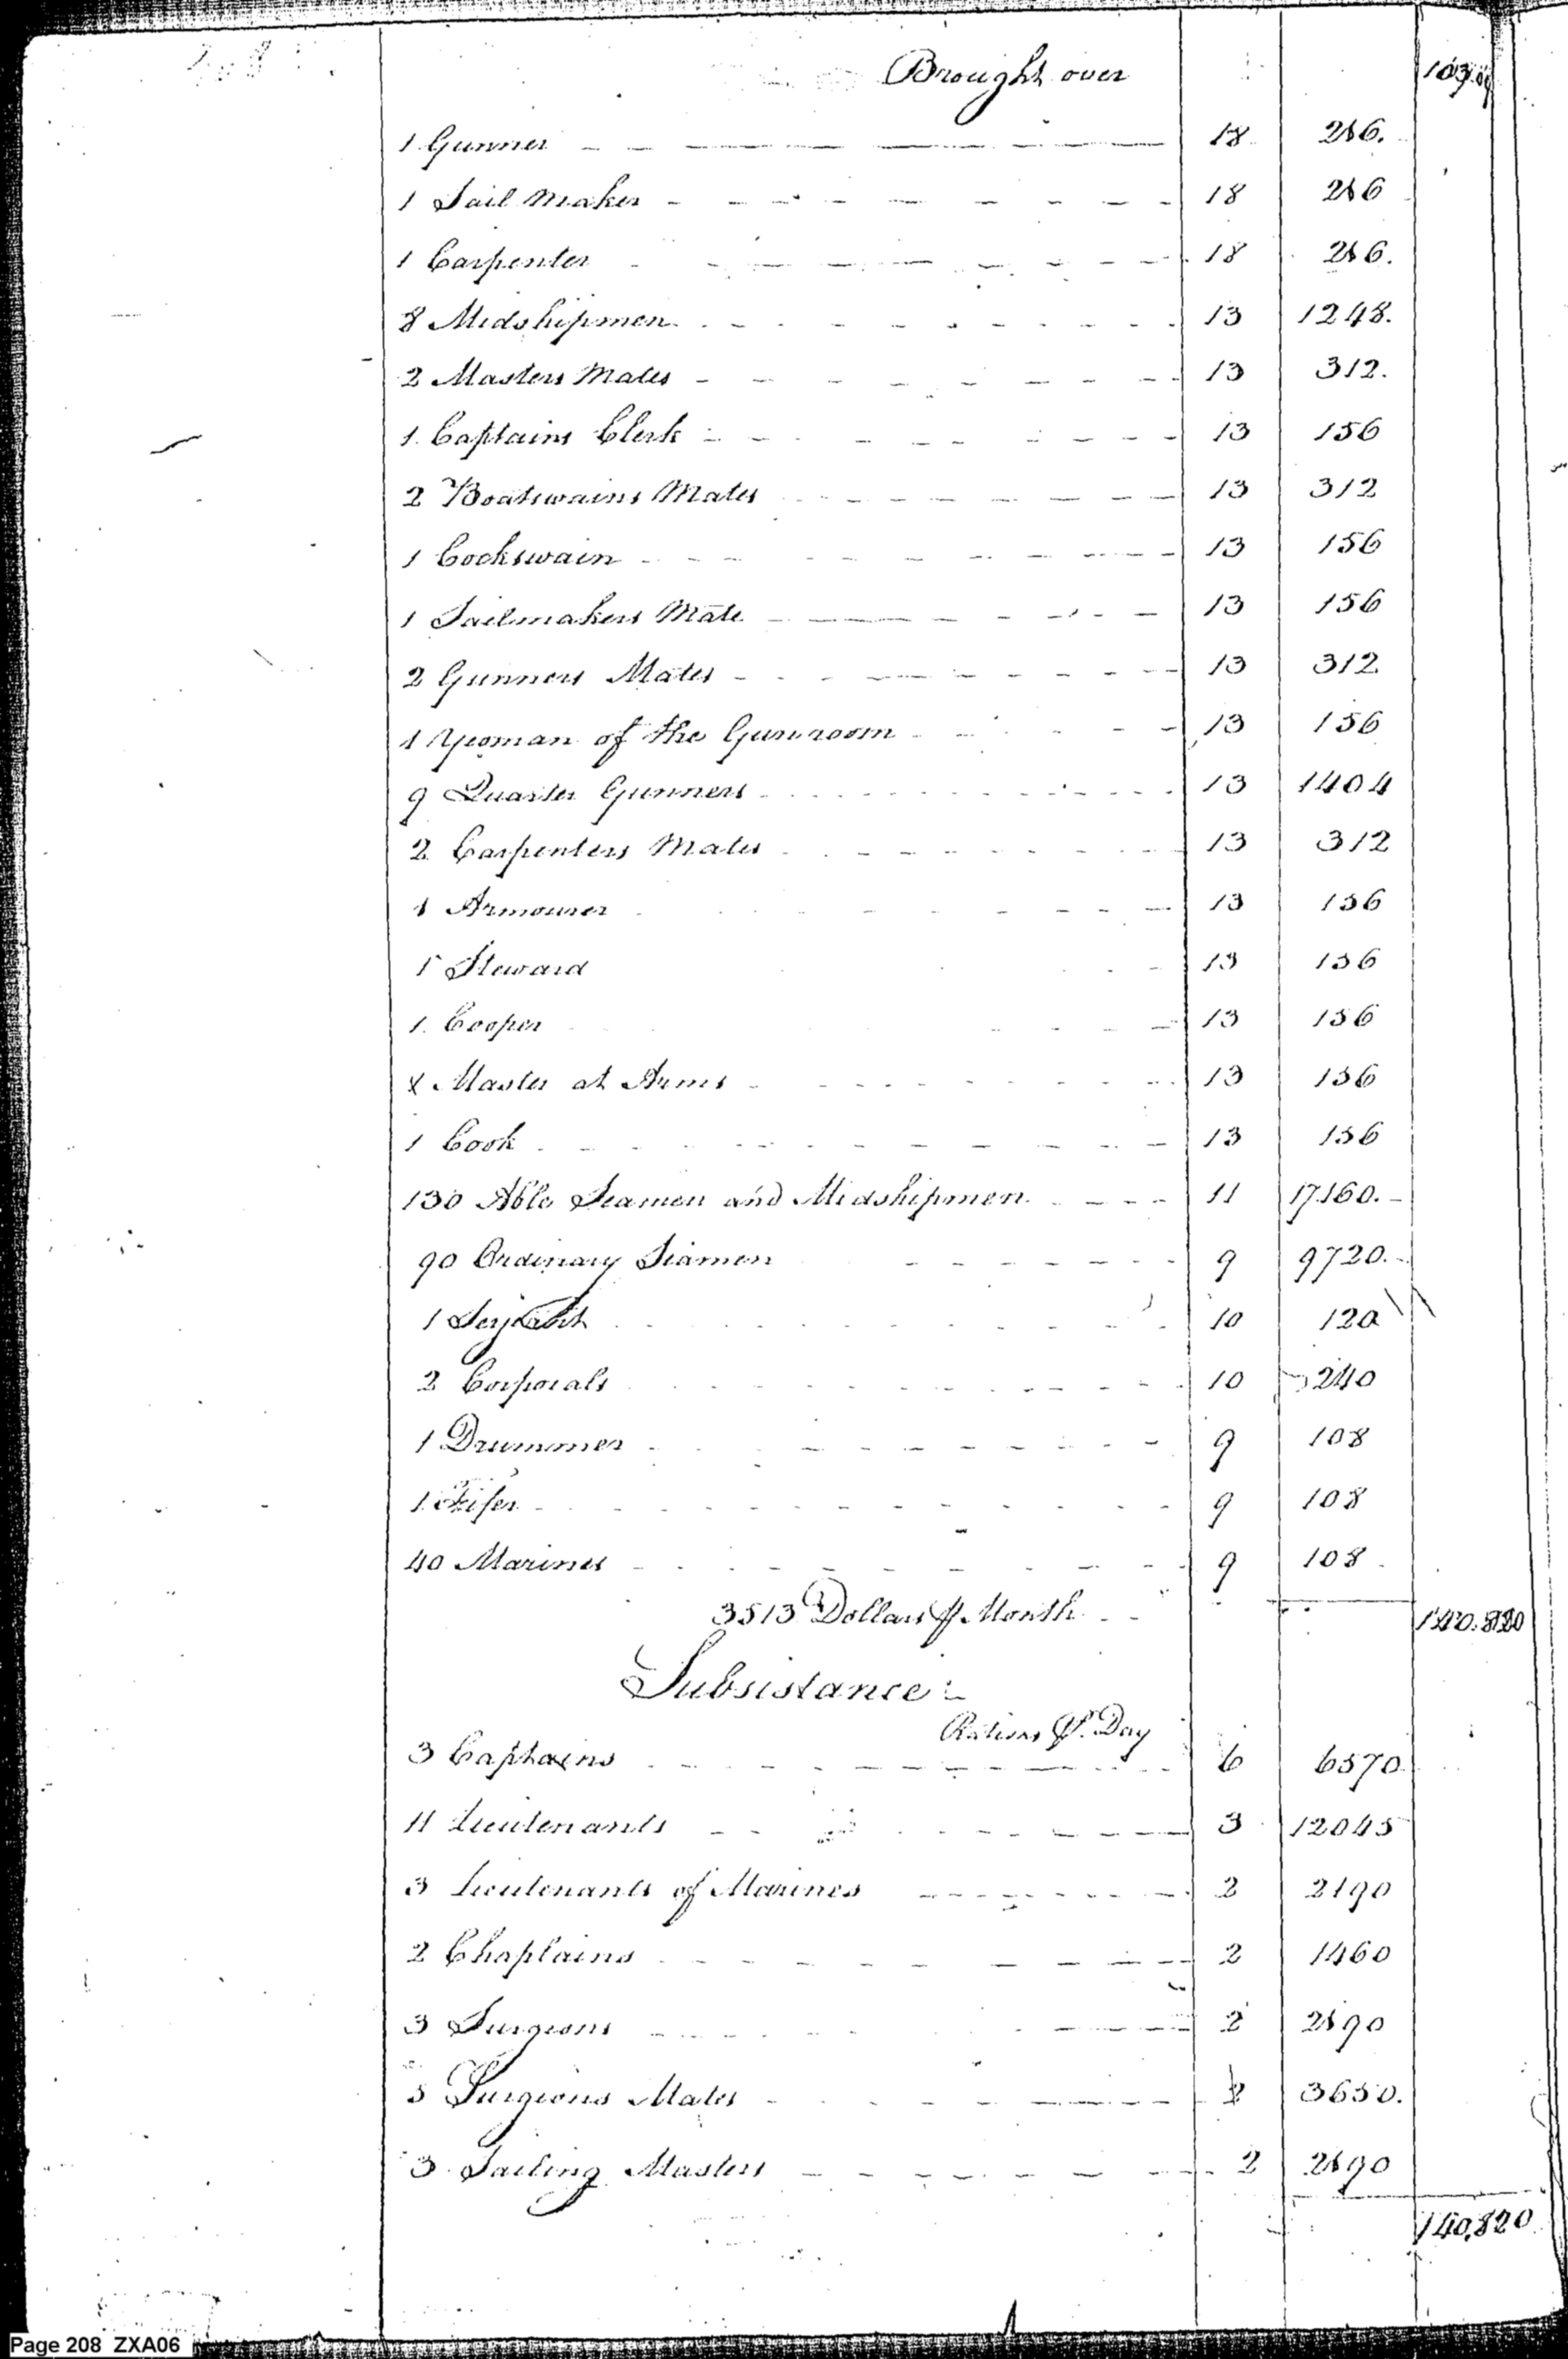 Brought over
1 Gunner 18 216.
1 Sail Maker 18 216
1 Carpenter 18 216.
8 Midshipmen 13 1248.
2 Masters Mates 13 312.
1 Captains Clerk 13 156
2 Boatswains Mates 13 312
1 Cockswain 13 156
1 Sailmakers Mate 13 156
2 Gunners Mates 13 312
1 Yeoman of the Gunroom 13 156
9 Quarter Gunners 13 1404
2 Carpenters Mates 13 312
1 Armourer 13 156
1 Steward 13 156
1 Cooper 13 156
1 Master at Arms 13 156
1 Cook 13 156
130 Able Seamen and Midshipmen 11 17160.
90 Ordinary Seamen 9 9720.
1 Serjeant 10 120
2 Corporals 10 240
1 Drummer 9 108
1 Fifer 9 108
40 Marines 9 108
3513 Dollars Month 140.820
Subsistance
Rations Pr. Day
3 Captains 6 6570
11 Lieutenants 3 12045
3 Lieutenants of Marines 2 2190
2 Chaplains 2 1460
3 Surgeons 2 2190
5 Surgeons Mates 2 3650.
3 Sailing Masters 2 2190
140,820
Page 208 ZXA06